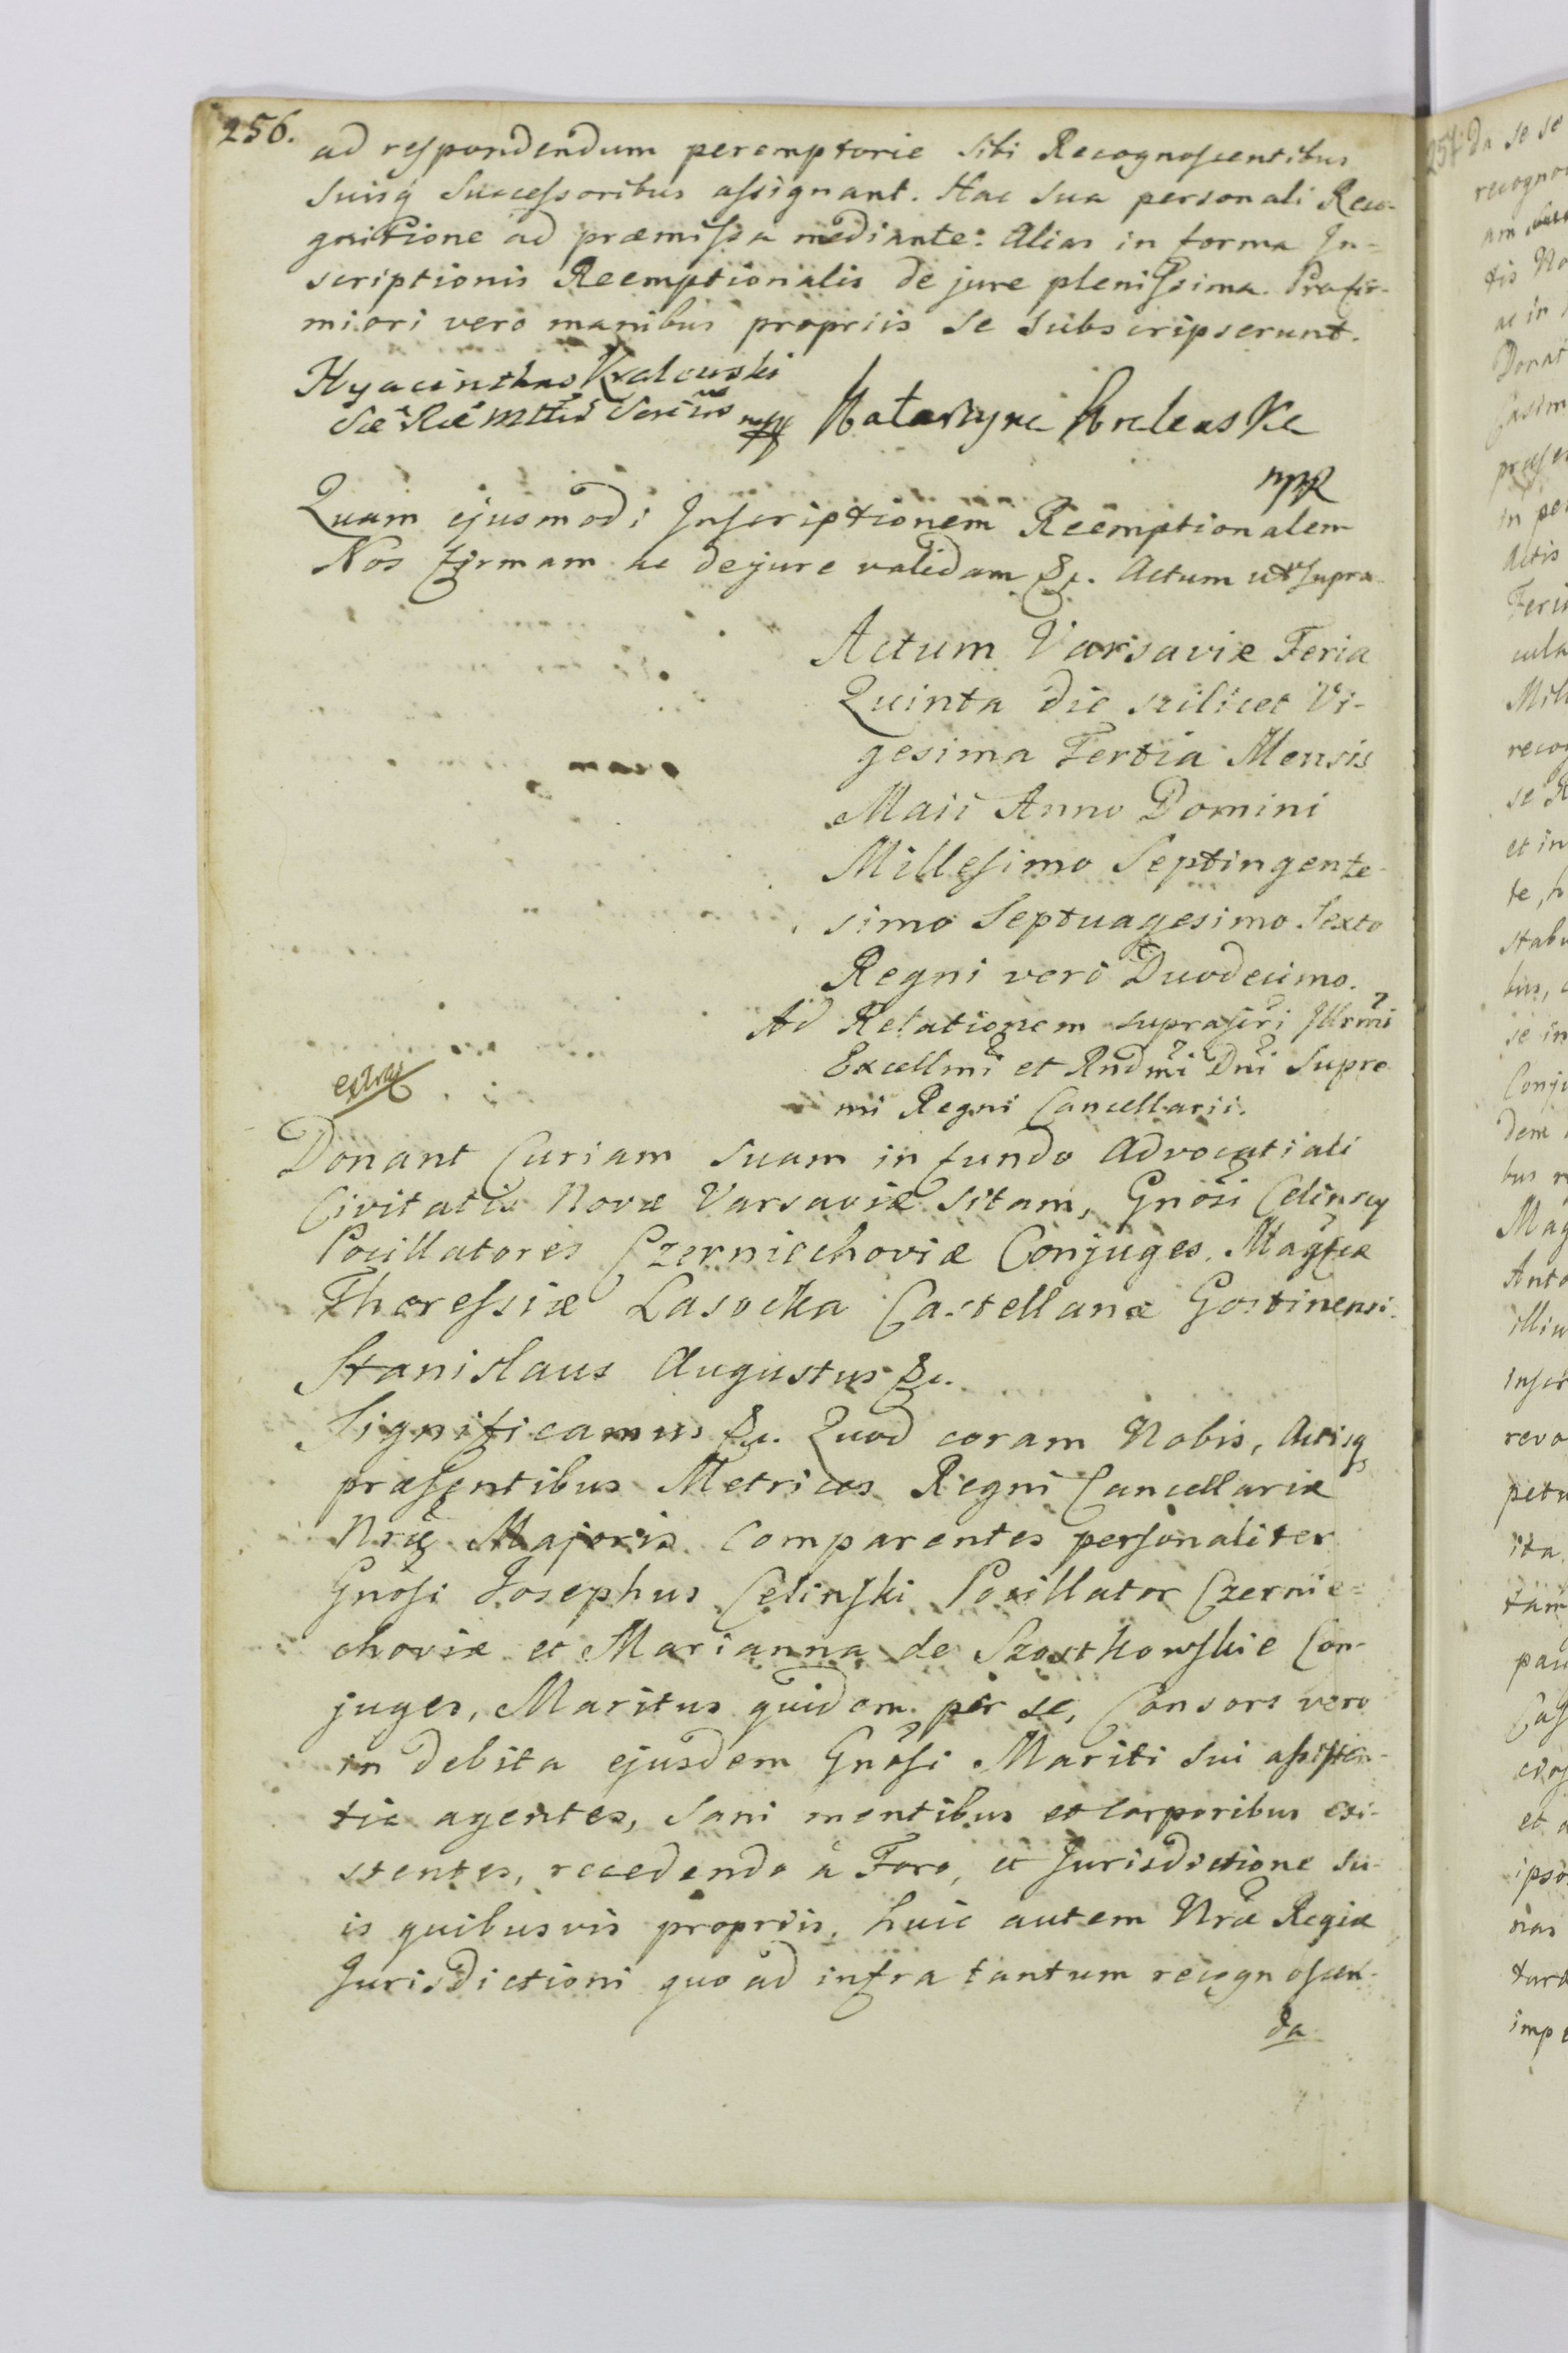 256.
ad respondendum peremptorie sibi Recognoscentibus
suisq̃ Successoribus assignant. Hac sua personali Reco-
gnitione ad præmissa mediante: Alias in forma In-
scriptionis Reemptionalis de jure plenissima. Pro fir-
miori vero manibus propriis se subscripserunt.
Hyacinthus Kralewski
Sæ Ræ Mttis Secrius mpp Katarzyna Kralewska
mpp
Quam ejusmodi Inscriptionem Reemptionalem
Nos firmam ac dejure validam &c. Actum ut supra
Actum Varsaviæ Feria
Quinta die scilicet Vi-
gesima Tertia Mensis
Maii Anno Domini
Millesimo Septingente-
simo Septuagesimo Sexto
Regni vero Duodecimo.
Ad Relationem suprascri Illrmi
Excellmi et Rndmi Dni Supre
mi Regni Cancellarii.
extrad
Donant Curiam suam in fundo Advocatiali
Civitatis Novæ Varsaviæ sitam, Gnosi Celinscy
Pocillatores Czerniechoviæ Conjuges. Magcæ
Theressiæ Lasocka Castellanæ Gostinensi.
Stanislaus Augustus &c.
Significamus &c. Quod coram Nobis, Actisq
præsentibus Metrices Regni Cancellariæ
Nræ Majoris Comparentes personaliter
Gnosi Josephus Celinski Pocillator Czernie=
choviæ et Marianna de Szostkowskie Con-
juges, Maritus quidem per se, Consors vero
in debita ejusdem Gnosi Mariti sui assisten-
tia agentes, sani mentibus et Corporibus exi-
stentes, recedendo à Foro, et Jurisdictione su-
is quibusvis propriis, huic autem Nræ Regiæ
Jurisdictioni quo ad infra tantum recognoscen-
da
257. da se se
recogno
tis No
ac in
Donat
Casim
præse
in per
Actis
Feri
cula
Mil
recog
se
et in
te, h
stabu
bus,
se in
Conju
dem
bus
Mag
Anto
illiu
inscr
revo
petu
ita
tam
pau
Cas
et a
ipso
nas
tura
imp